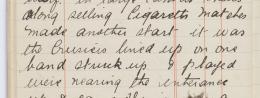 along selling Cigaretts matches
made another start it was
the lined up on one
band struck up & played
were nearing the enterance